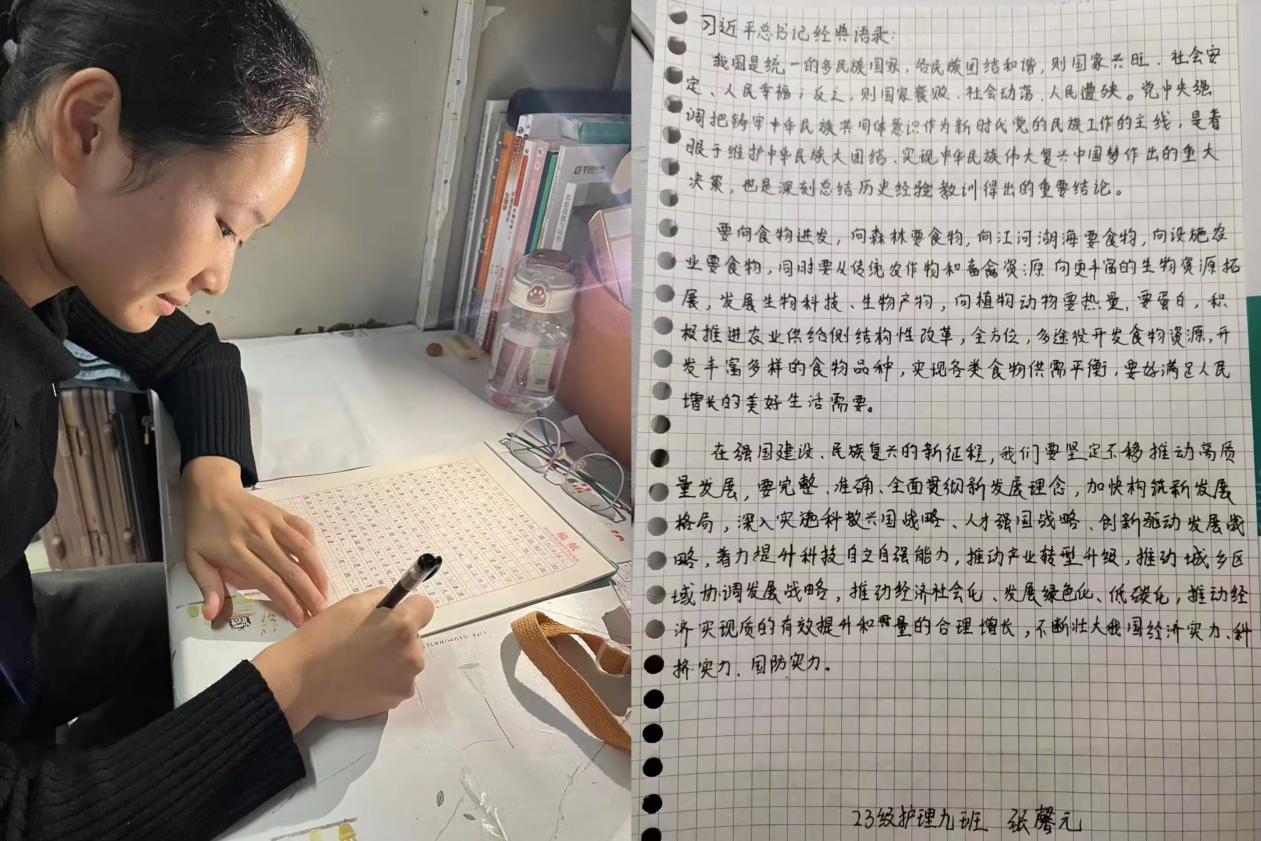 习近平总书记经典语录:
我国是统一的多民族国家,各民族团结和谐,则国家兴旺、社会安
定、人民幸福;反之,则国家衰败、社会动荡、人民遭殃。党中央强
调把铸牢中华民族共同体意识作为新时代党的民族工作的主线,是着
眼于维护中华民族大团结、实现中华民族伟大复兴中国梦作出的重大
决策,也是深刻总结历史经验教训得出的重要结论。
要向食物进发,向森林要食物,向江河湖海要食物,向设施农
业要食物,同时要从传统农作物和畜禽资源向更丰富的生物资源拓
展,发展生物科技、生物产物,向植物动物要热量,要蛋白,积
极推进农业供给侧结构性改革,全方位,多途径开发食物资源,开
发丰富多样的食物品种,实现各类食物供需平衡,要好满足人民
增长的美好生活需要。
在强国建设、民族复兴的新征程,我们要坚定不移推动高质
量发展,要完整、准确、全面贯彻新发展理念,加快构筑新发展
格局,深入实施科教兴国战略、人才强国战略、创新驱动发展战
略,着力提升科技自立自强能力,推动产业转型升级,推动城乡区
域协调发展战略,推动经济社会化、发展绿色化、低碳化,推动经
济实现质的有效提升和量的合理增长,不断壮大我国经济实力、科
技实力、国防实力。
23级护理九班 张馨元
稿纸